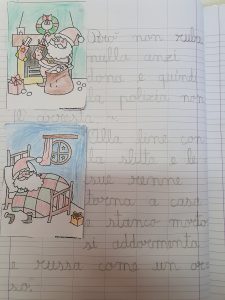 Però non ruba
nulla anzi
dona e quindi
la polizia non
l'arresta.
Alla fine con
la slitta e le
sue renne
torna a casa
e stanco morto
si addormenta
e russa come un or
so.